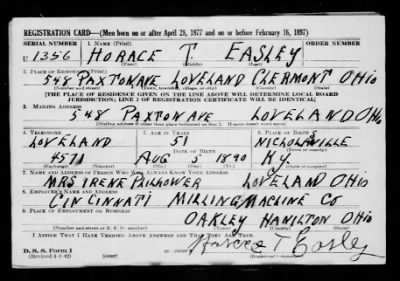 REGISTRATION CARD—(Men born on or after April 28, 1877 and on or before February 16, 1897)
SERIAL NUMBER 1. NAME (Print) ORDER NUMBER
U 1356 HORACE T. EASLEY
2. PLACE OF RESIDENCE (Print)
548 PAXTON AVE LOVELAND CLERMONT OHIO
(Number and street) (Town, township, village, or city) (County) (State)
[THE PLACE OF RESIDENCE GIVEN ON THE LINE ABOVE WILL DETERMINE LOCAL BOARD
JURISDICTION; LINE 2 OF REGISTRATION CERTIFICATE WILL BE IDENTICAL]
3. MAILING ADDRESS
548 PAXTON AVE LOVELAND OHIO
[Mailing address if other than place indicated on line 2. If same insert word same]
4. TELEPHONE 5. AGE IN YEARS 6. PLACE OF BIRTH
LOVELAND 51 NICHOLASVILLE
DATE OF BIRTH
4571 AUG 5 1890 KY.
(Exchange) (Number) (Mo.) (Day) (Yr.) (State or country)
7. NAME AND ADDRESS OF PERSON WHO WILL ALWAYS KNOW YOUR ADDRESS
MRS IRENE PHILHOWER LOVELAND OHIO
8. EMPLOYER'S NAME AND ADDRESS
CINCINNATI MILLING MACHINE CO
9. PLACE OF EMPLOYMENT OR BUSINESS
OAKLEY HAMILTON OHIO
(Number and street or R. F. D. number) (Town) (County) (State)
I AFFIRM THAT I HAVE VERIFIED ABOVE ANSWERS AND THAT THEY ARE TRUE.
D. S. S. Form 1 Horace T Easley
(Revised 4-1-42) (over)